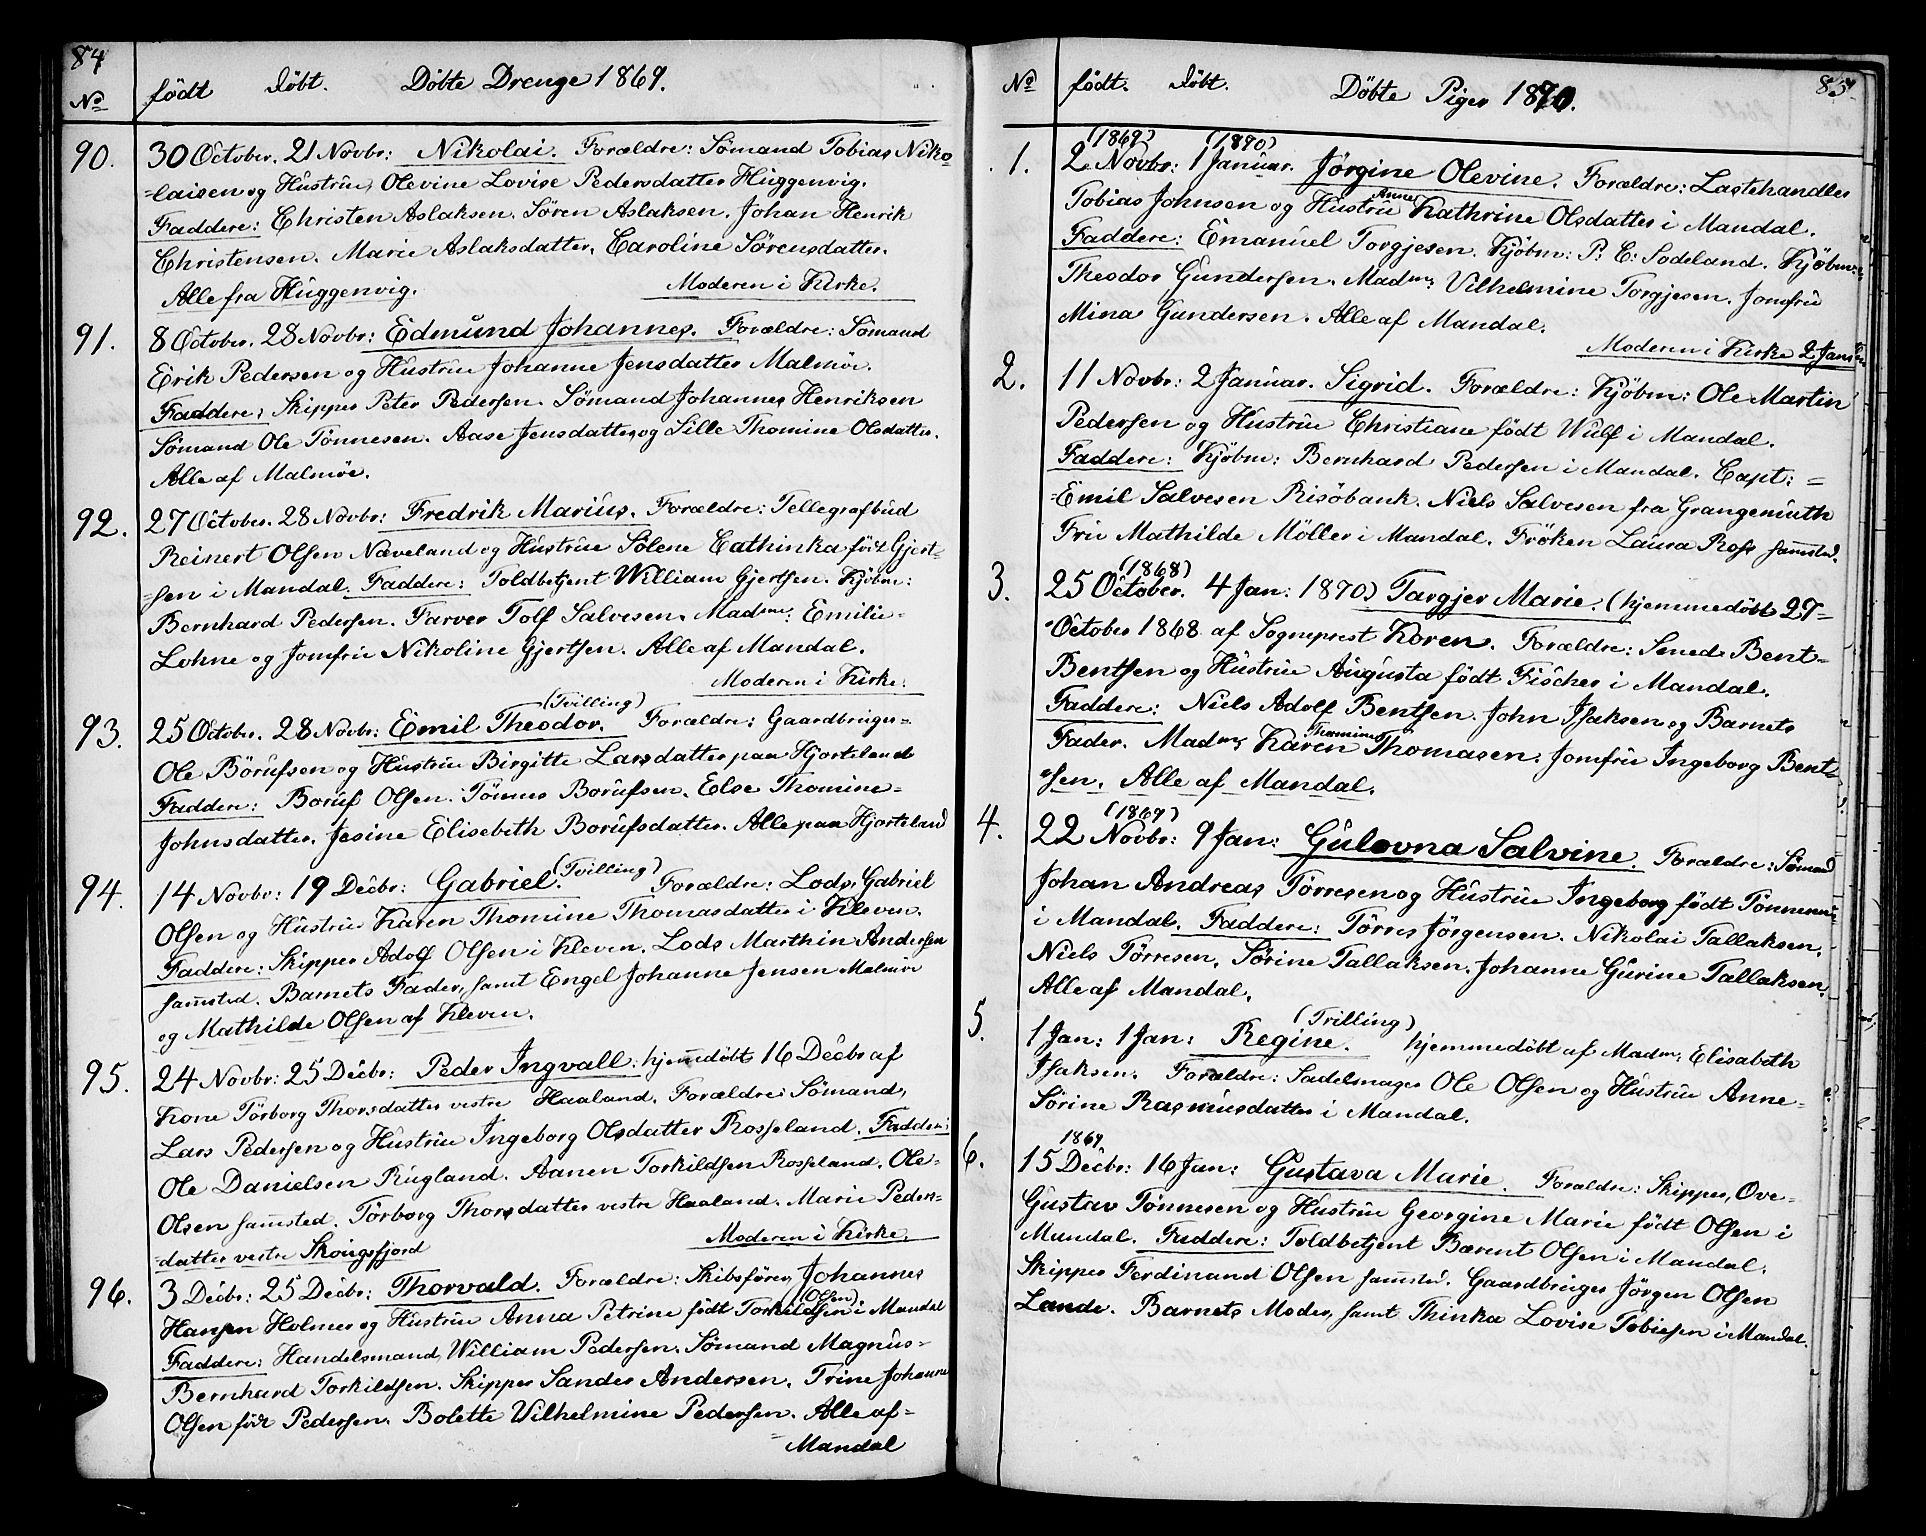 84
No født døbt. Döbte Drenge 1869.
90. 30 October. 21 Novbr: Nikolai. Forældre: Sömand Tobias Niko-
=laisen og Hustrue Olevine Lovise Pedersdatter Huggenvig.
Faddere: Christen Aslaksen. Sören Aslaksen. Johan Henrik
Christensen. Marie Aslaksdatter. Caroline Sörensdatter.
Alle fra Huggenvig. Moderen i Kirke.
91. 8 October. 28 Novbr: Edmund Johannes. Forældre: Sömand
Erik Pedersen og Hustrue Johanne Jensdatter Malmöe.
Faddere: Skipper Peter Pedersen. Sömand Johannes Henriksen
Sömand Ole Tönnesen. Aase Jensdatter og Sille Thomine Olsdatter.
Alle af Malmöe.
92. 27 October. 28 Novbr: Fredrik Marius. Forældre: Tellegrafbud
Reinert Olsen Næveland og Hustrue Solene Cathinka født Gjert-
=sen i Mandal. Faddere: Toldbetjent William Gjertsen. Kjöbm:
Bernhard Pedersen. Farver Tolf Salvesen. Madme: Emilie=
Lohne og Jomfrue Nikoline Gjertsen. Alle af Mandal.
Moderen i Kirke.
(Tvilling)
93. 25 October. 28 Novbr: Emil Theodor. Forældre: Gaardbruger=
Ole Börufsen og Hustrue Birgitte Larsdatter paa Hjorteland
Faddere: Boruf Olsen. Tönnes Borufsen. Else Thomine=
Johnsdatter. Jesine Elisebeth Borufsdatter. Alle paa Hjorteland
94. 14 Novbr: 19 Decbr: Gabriel. (Tvilling) Forældre: Lods Gabriel
Olsen og Hustrue Karen Thomine Thomasdatter i Kleven.
Faddere: Skipper Adolf Olsen i Kleven. Lods Marthin Andersen
sammested. Barnets Fader, samt Engel Johanne Jensen Malmöe
og Mathilde Olsen af Kleven.
95. 24 Novbr: 25 Decbr: Peder Ingvall: hjemmedöbt 16 Decbr af
Kone Törborg Thorsdatter vestre Haaland. Forældre Sömand,
Lars Pedersen og Hustrue Ingeborg Olsdatter Rosseland. Faddere:
Ole Danielsen Rugland. Aanen Torkildsen Rosseland. Ole=
Olsen sammested. Törborg Thorsdatter vestre Haaland. Marie Peders=
=datter vestre Skougsfjord Moderen i Kirke
96. 3 Decbr: 25 Decbr: Thorvald. Forældre: Skibsförer Johannes
(Olsen)
Hansen Holmer og Hustrue Anna Petrine født Torkildsen i Mandal
Faddere: Handelsmand William Pedersen. Sömand Magnus=
Bernhard Torkildsen. Skipper Sander Andersen. Trine Johanne
Olsen födt Pedersen. Bolette Vilhelmine Pedersen. Alle af=
=Mandal
85.
No født. døbt. Döbte Piger 1870.
(1869) (1870)
1. 2 Novbr: 1 Januar. Jörgine Olevine. Forældre: Lastehandler
Anne
Tobias Johnsen og Hustrue Kathrine Olsdatter i Mandal.
Faddere: Emanuel Torgjesen. Kjöbm: P. C: Sodeland. Kjöbm:
Theodor Gundersen. Madme Vilhelmine Torgjesen. Jomfrue
Mina Gundersen. Alle af Mandal.
Moderen i Kirke 2 Januar
2. 11 Novbr: 2 Januar. Sigrid. Forældre: Kjöbm: Ole Martin
Pedersen og Hustrue Christiane født Wulf i Mandal.
Faddere: Kjöbm: Bernhard Pedersen i Mandal. Capt: =
=Emil Salvesen Risöbank. Niels Salvesen fra Grangemuth
Frue Mathilde Möller i Mandal. Fröken Laura Ross sammested.
(1868)
3. 25 October. 4 Jan: 1870) Targjer Marie. (hjemmedöbt 27-
=October 1868 af Sogneprest Koren. Forældre: Smed Bent=
Bentsen og Hustrue Augusta født Fischer i Mandal.
Faddere: Niels Adolf Bentsen. John Isaksen og Barnets
Thomine
Fader. Madme Karen Thomasen. Jomfrue Ingeborg Bent=
=sen. Alle af Mandal.
(1869)
4. 22 Novbr: 9 Jan: Gulovna Salvine. Forældre: Sömand
Johan Andreas Törresen og Hustrue Ingeborg født Tönnesen
i Mandal. Faddere: Törres Jörgensen. Nikolai Tallaksen.
Niels Törresen. Sörine Tallaksen. Johanne Gurine Tallaksen.
Alle af Mandal.
(Trilling)
5. 1 Jan: 1 Jan: Regine. hjemmedöbt af Madme: Elisabeth
Isaksen. Forældre: Sadelmager Ole Olsen og Hustrue Anne=
Sörine Rasmusdatter i Mandal.
1869.
6. 15 Decbr: 16 Jan: Gustava Marie. Forældre: Skipper Ove=
Gustav Tönnesen og Hustrue Georgine Marie født Olsen i
Mandal. Faddere: Toldbetjent Bærent Olsen i Mandal.
Skipper Ferdinand Olsen sammested. Gaardbruger Jörgen Olsen
Lande. Barnets Moder, samt Thinka Lovise Tobiesen i Mandal.